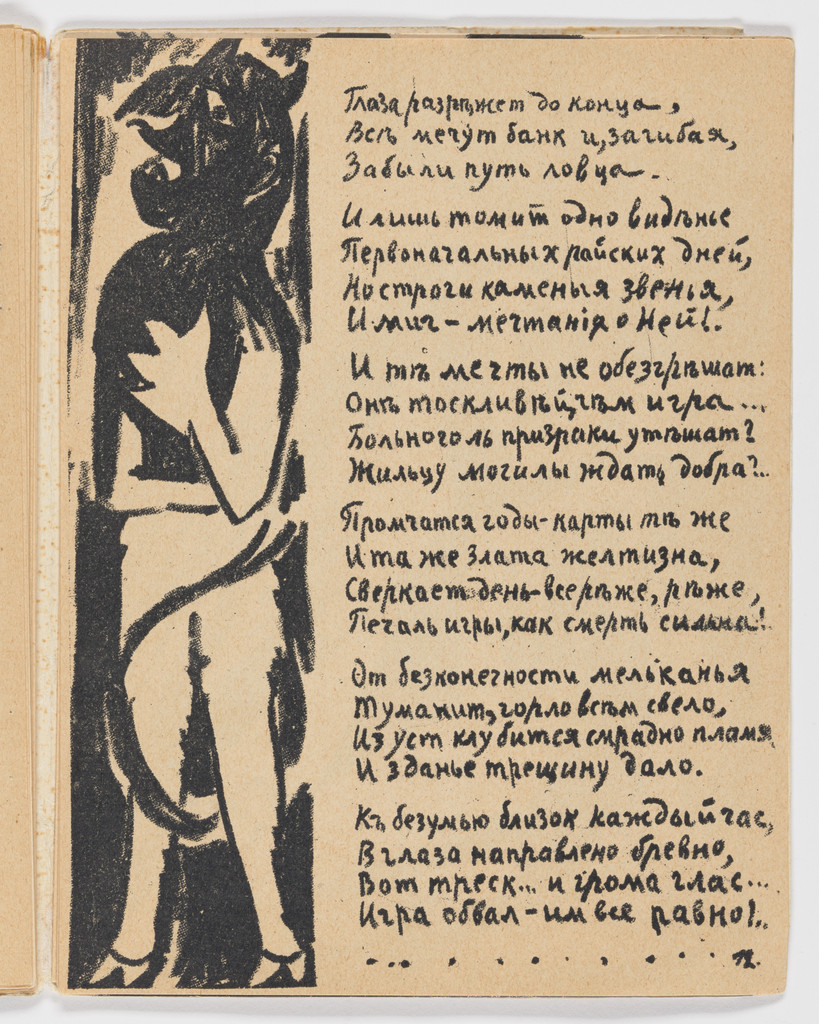 Глаза разрѣжет до конца,
Всѣ мечут банк и, загибая,
Забыли путь ловца.
И лишь томит одно видѣнье
Первоначальных райских дней,
Но строги каменья звенья,
И миг – мечтанія о Ней!.
И тѣ мечты не обезгрѣшат:
Онѣ тоскливѣй, чѣм игра...
Больного ль призраки утѣшат?
Жильцу могилы ждать добра?..
Промчатся годы – карты тѣ же
И та же злата желтизна,
Сверкает день – все рѣже, рѣже,
Печаль игры, как смерть сильна!
От безконечности мельканья
Туманит, горло всѣм свело,
Из уст клубится смрадно пламя
И зданье трещину дало.
Къ безумью близок каждый час,
В глаза направлено бревно,
Вот треск... и грома глас...
Игра обвал – им все равно!..
12.